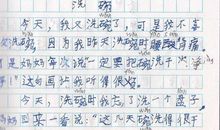 洗碗
今天，我又洗碗了，可是我不喜
欢洗碗，因为我昨天洗碗时腰酸背痛。
是妈妈每次说一定要把碗洗干净
！”这句画让我听得很好。
今天，洗碗时我忘了洗一个盘子
妈妈回来一看说：“这几天碗洗得很